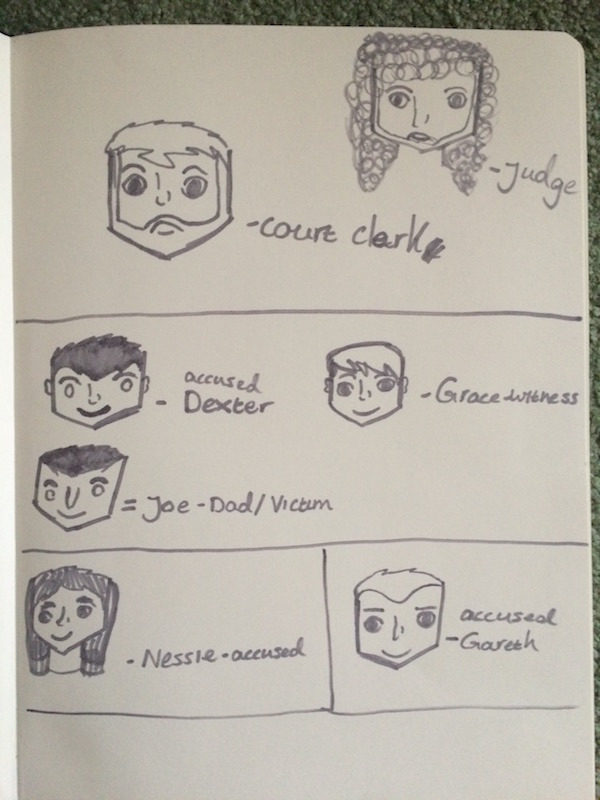 -Judge
-court clerk
accused
- Dexter
- Grace-witness
= Joe-Dad/Victim
- Nessie-accused
accused
-Gareth